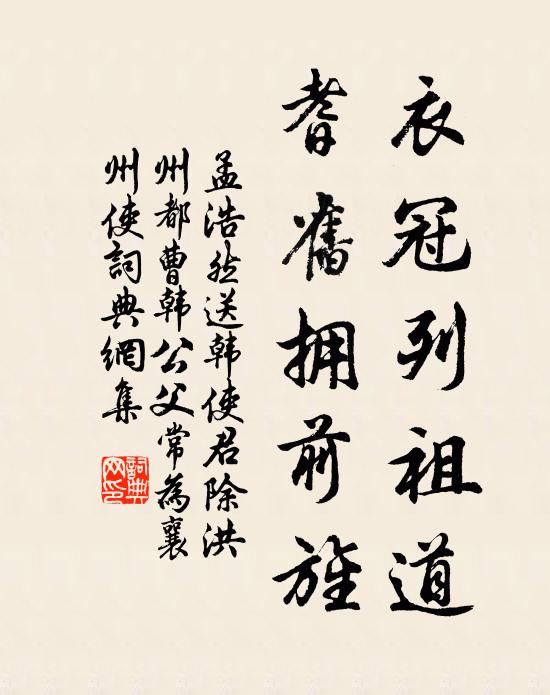 衣冠列祖道
耆舊拥前旌
孟浩然送韩使君除洪
州都曹韩公父常為襄
州使詞典網集
詞典
网印